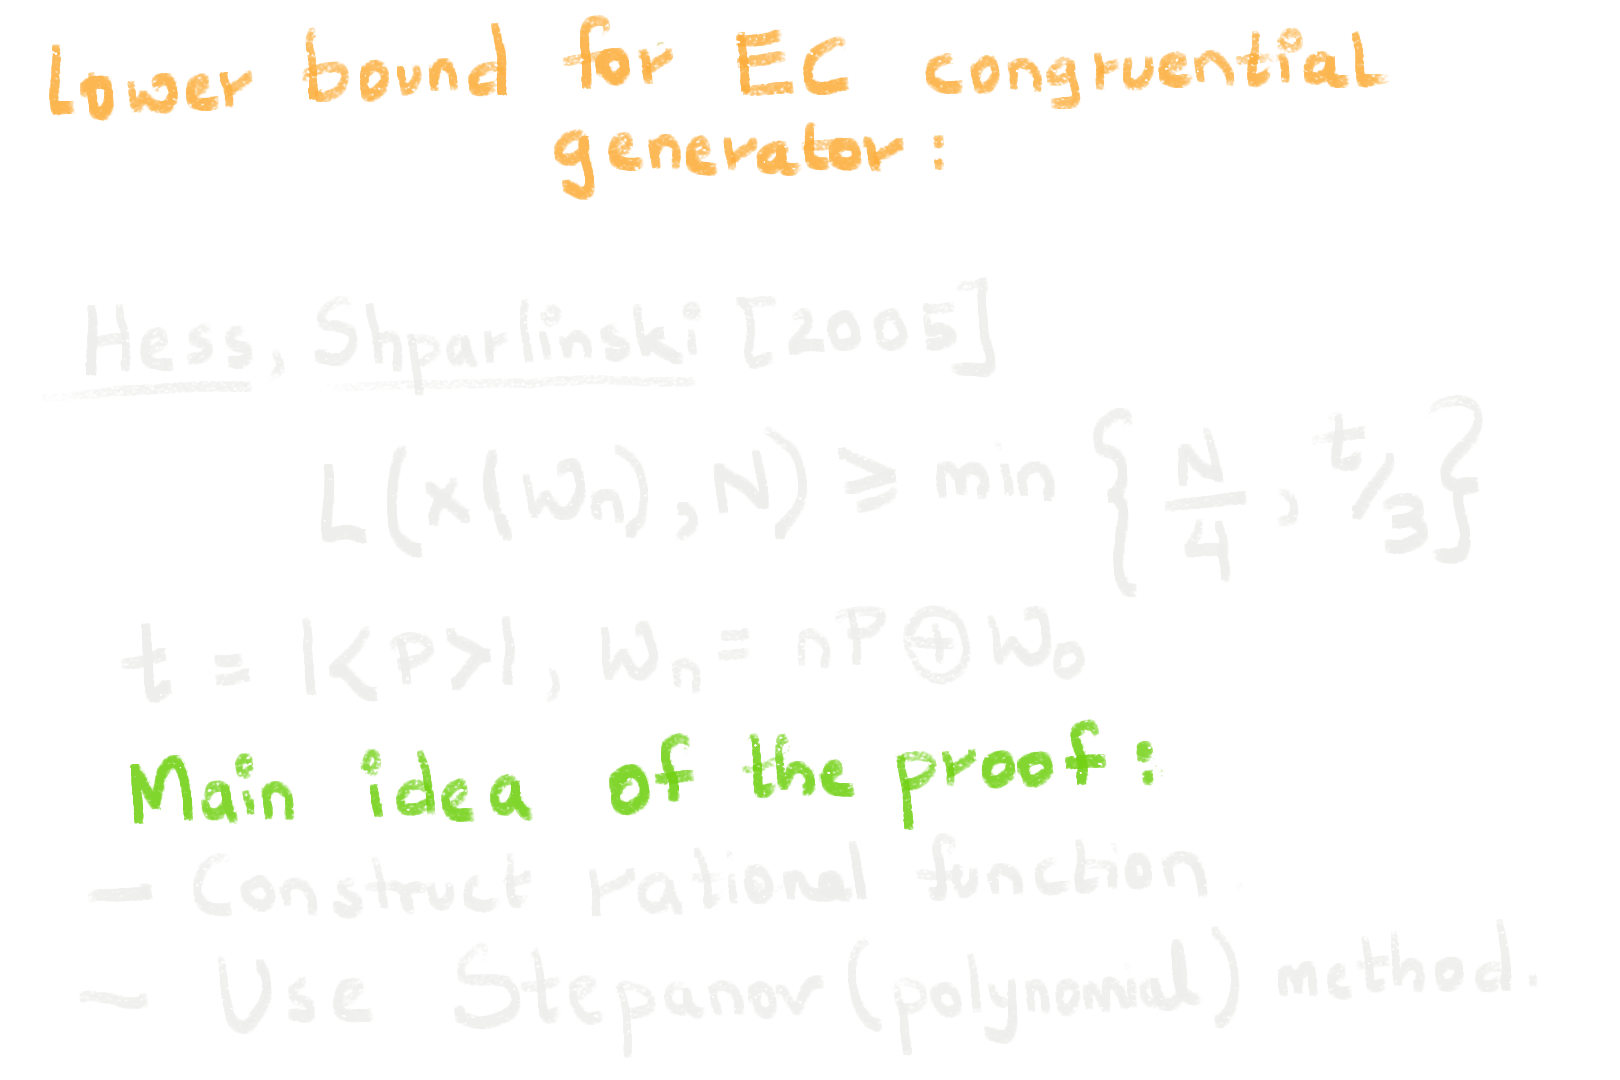 Lower bound for EC congruential
generator:
Hess, Shparlinski [2005]
L(x(W_n), N) ≥ min { N/4, t/3 }
t = |<P>|, W_n = nP ⊕ W_0
Main idea of the proof:
- Construct rational function
- Use Stepanov (polynomial) method.